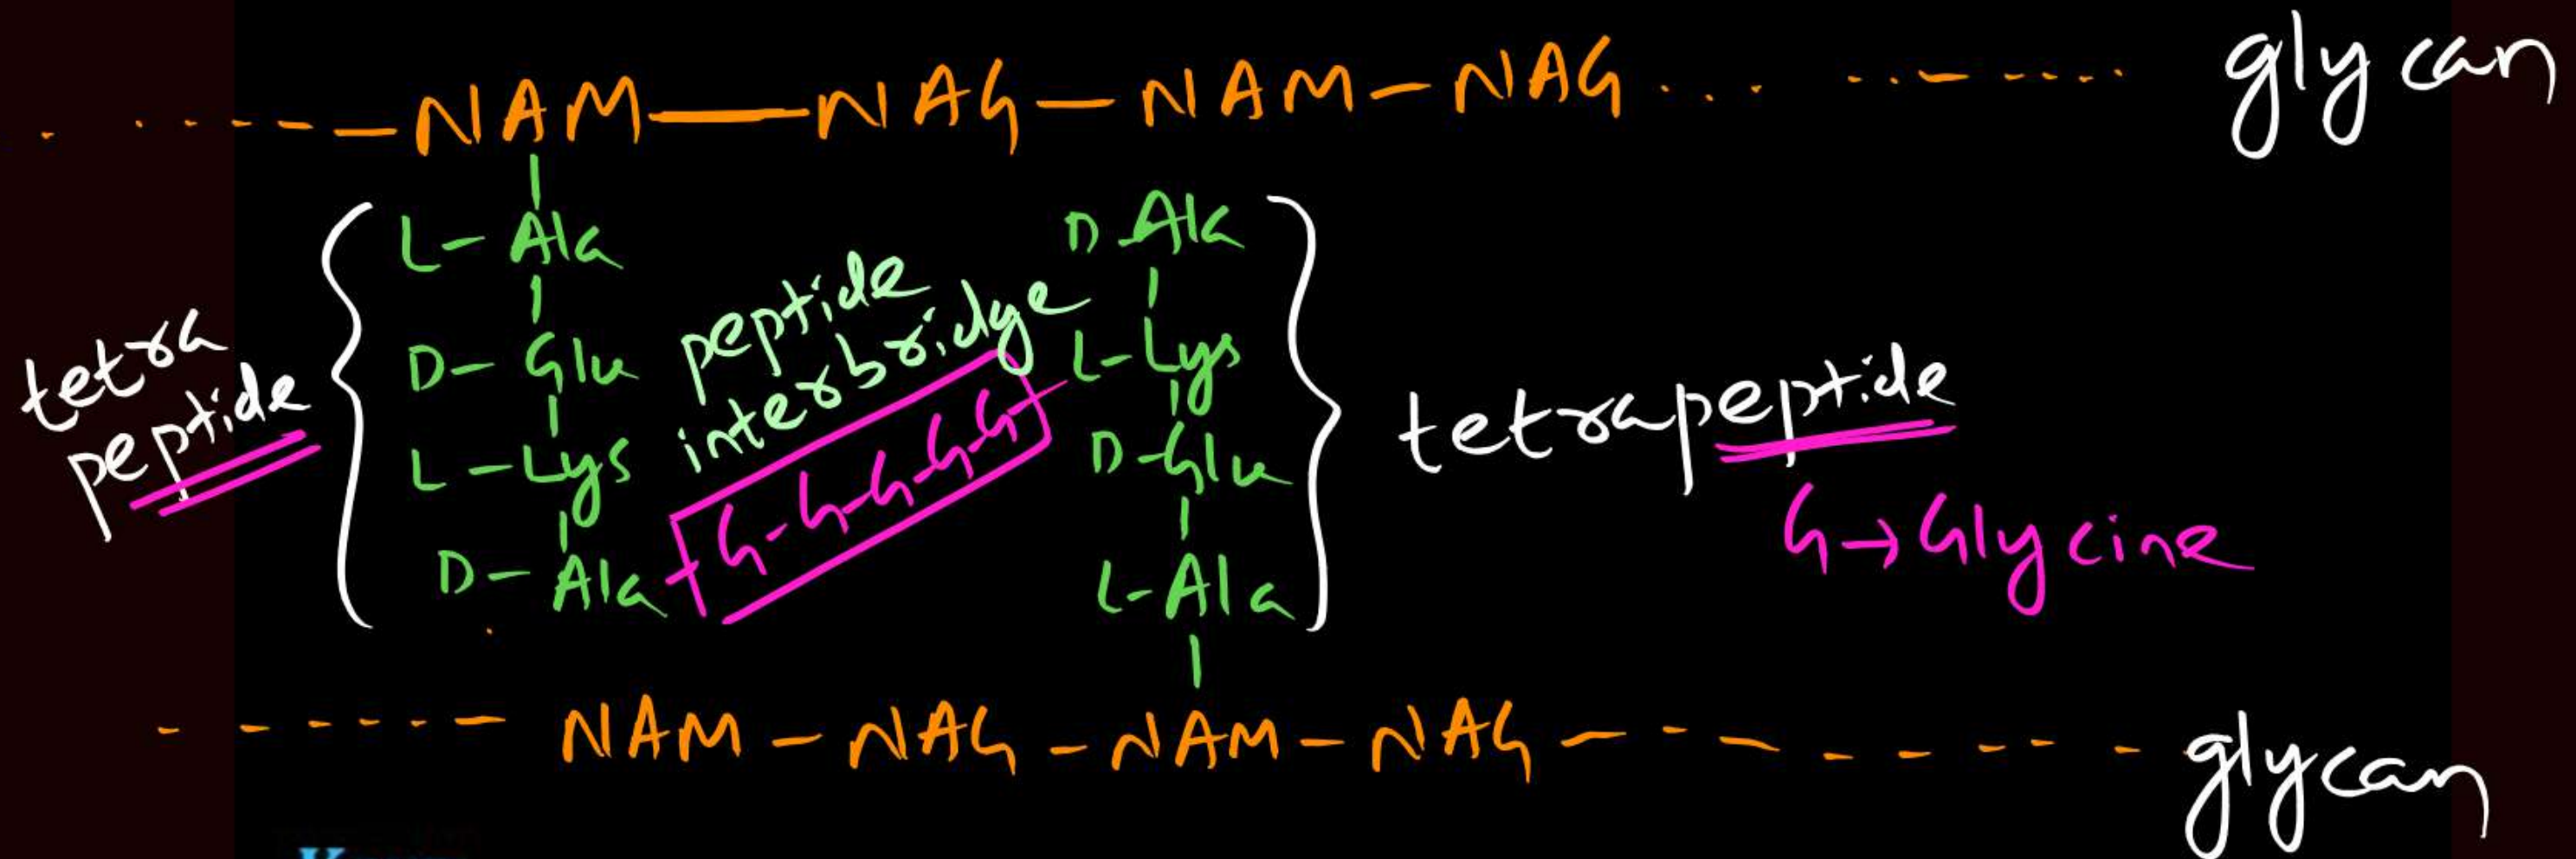 NAM — NAG — NAM — NAG glycan
L- Ala
D- Glu
L- Lys
D- Ala
tetra
peptide
peptide
interbridge
G-G-G-G-G
D Ala
L-Lys
D-Glu
L-Ala
tetrapeptide
G → Glycine
NAM - NAG - NAM - NAG glycan